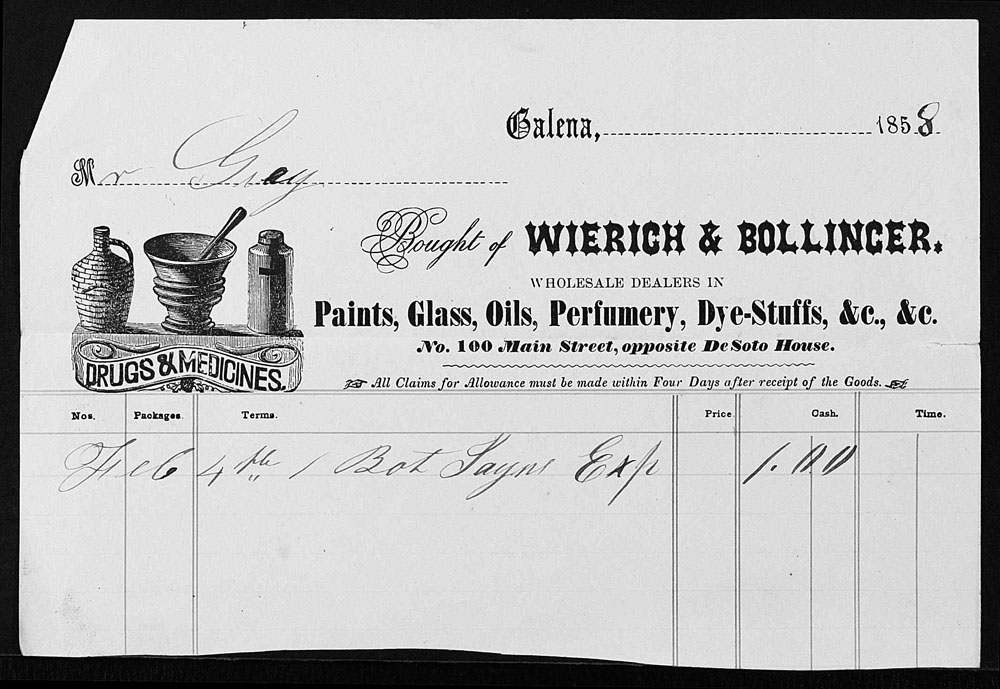 Galena, 1858
Mr Gray
Bought of WIERICH & BOLLINGER.
WHOLESALE DEALERS IN
Paints, Glass, Oils, Perfumery, Dye-Stuffs, &c., &c.
No. 100 Main Street, opposite DeSoto House.
All Claims for Allowance must be made within Four Days after receipt of the Goods.
DRUGS & MEDICINES.
Nos. Packages. Terms. Price. Cash. Time.
Feb 4th 1 Bot Jayns Exp 1.00